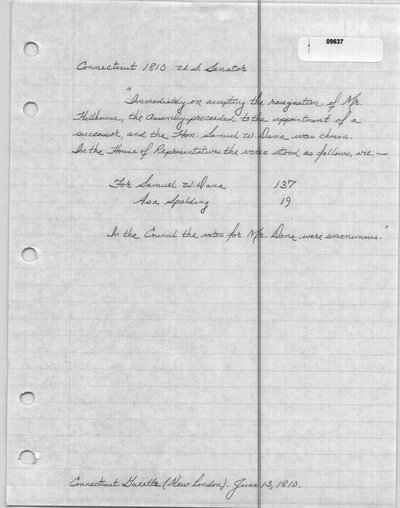 09637
Connecticut 1810 U.S. Senator
"Immediately on accepting the resignation of Mr.
Hillhouse, the Assembly proceeded to the appointment of a
successor, and the Hon. Samuel W. Dana was chosen.
In the House of Representatives the votes stood as follows, viz. —
For Samuel W. Dana 137
Asa Spalding 19
In the Council the votes for Mr. Dana were unanimous."
Connecticut Gazette (New London). June 13, 1810.